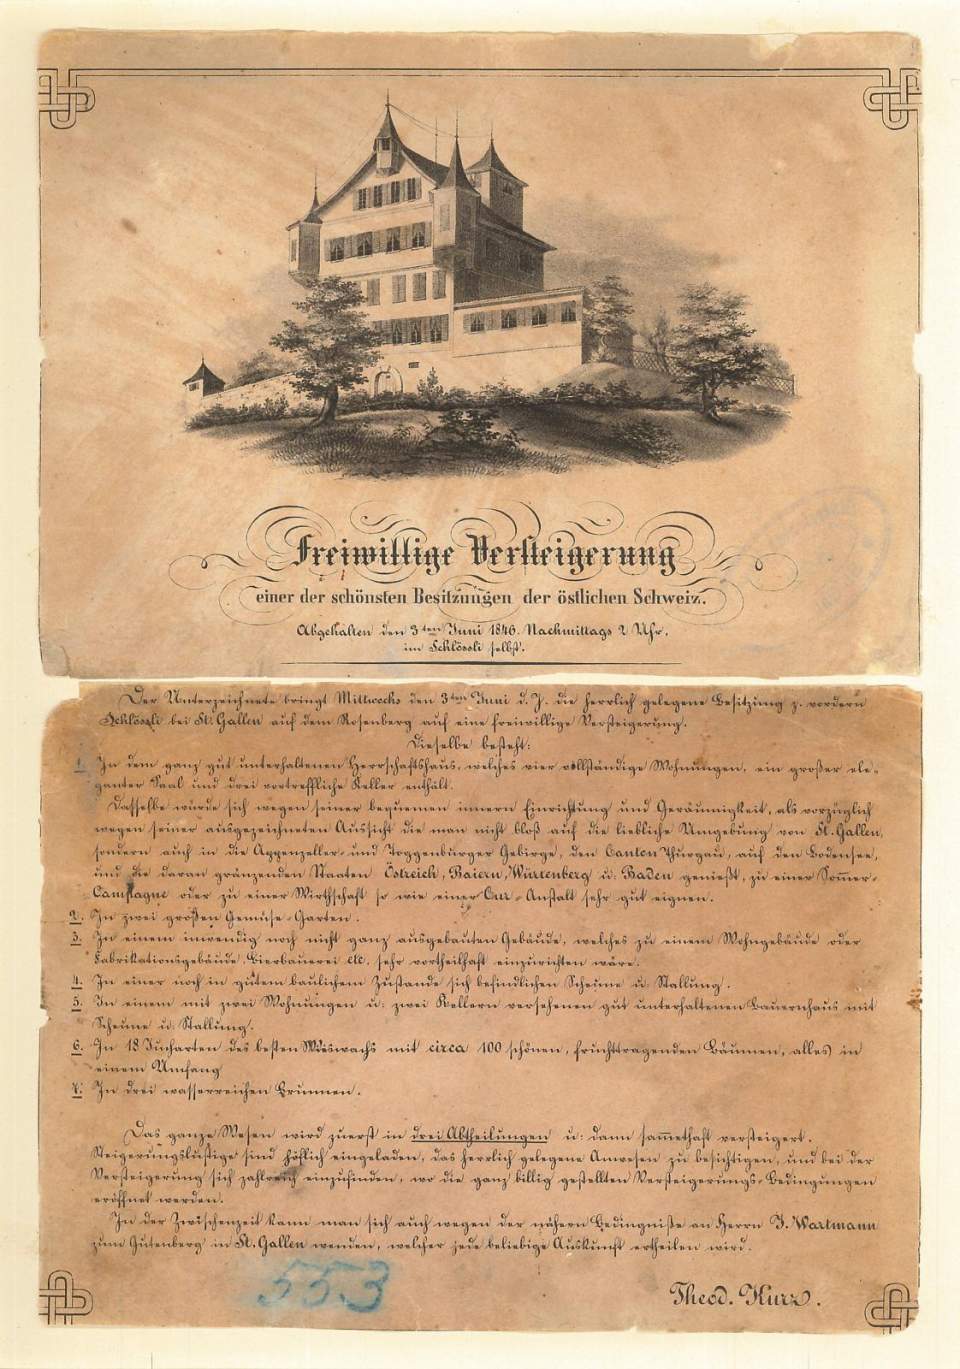 Freiwillige Versteigerung
einer der schönsten Besitzungen der östlichen Schweiz.
Abgehalten den 3ten Juni 1846. Nachmittags 2 Uhr.
im Schlössli selbst.
Der Unterzeichnete bringt Mittwochs den 3ten Juni d. J. die herrlich gelegene Besitzung z. vordern
Schlössli bei St. Gallen auf dem Rosenberg auf eine freiwillige Versteigerung.
Dieselbe besteht:
1. In dem ganz gut unterhaltenen Herrschaftshaus, welches vier vollständige Wohnungen, ein großer ele-
ganter Saal und drei vortreffliche Keller enthält.
Dasselbe würde sich wegen seiner bequemen innern Einrichtung und Geräumigkeit, als vorzüglich
wegen seiner ausgezeichneten Aussicht die man nicht bloß auf die liebliche Umgebung von St. Gallen,
sondern auch in die Appenzeller- und Toggenburger Gebirge, den Canton Thurgau, auf den Bodensee,
und die daran gränzenden Staaten Östreich, Baiern, Würtenberg u. Baden genießt, zu einer Sommer-
Campagne oder zu einer Wirthschaft so wie einer Cur-Anstalt sehr gut eignen.
2. In zwei großen Gemüse-Garten.
3. In einem inwendig noch nicht ganz ausgebauten Gebäude, welches zu einem Wohngebäude oder
Fabrikationsgebäude, Bierbrauerei etc. sehr vortheilhaft einzurichten wäre.
4. In einer noch in gutem baulichem Zustande sich befindlichen Scheune u: Stallung.
5. In einem mit zwei Wohnungen u: zwei Kellern versehenen gut unterhaltenen Bauernhaus mit
Scheune u: Stallung.
6. In 18 Jucharten des besten Wieswachs mit circa 100 schönen, fruchttragenden Bäumen, alles in
einem Umfang
7. In drei wasserreichen Brunnen.
Das ganze Wesen wird zuerst in drei Abtheilungen u: dann sammethaft versteigert.
Steigerungslustige sind höflich eingeladen, das herrlich gelegene Anwesen zu besichtigen, und bei der
Versteigerung sich zahlreich einzufinden, wo die ganz billig gestellten Versteigerungs-Bedingungen
eröffnet werden.
In der Zwischenzeit kann man sich auch wegen der nähern Bedingniße an Herrn J. Wartmann
zum Gutenberg in St. Gallen wenden, welcher jede beliebige Auskunft ertheilen wird.
553
Theod. Kurz.